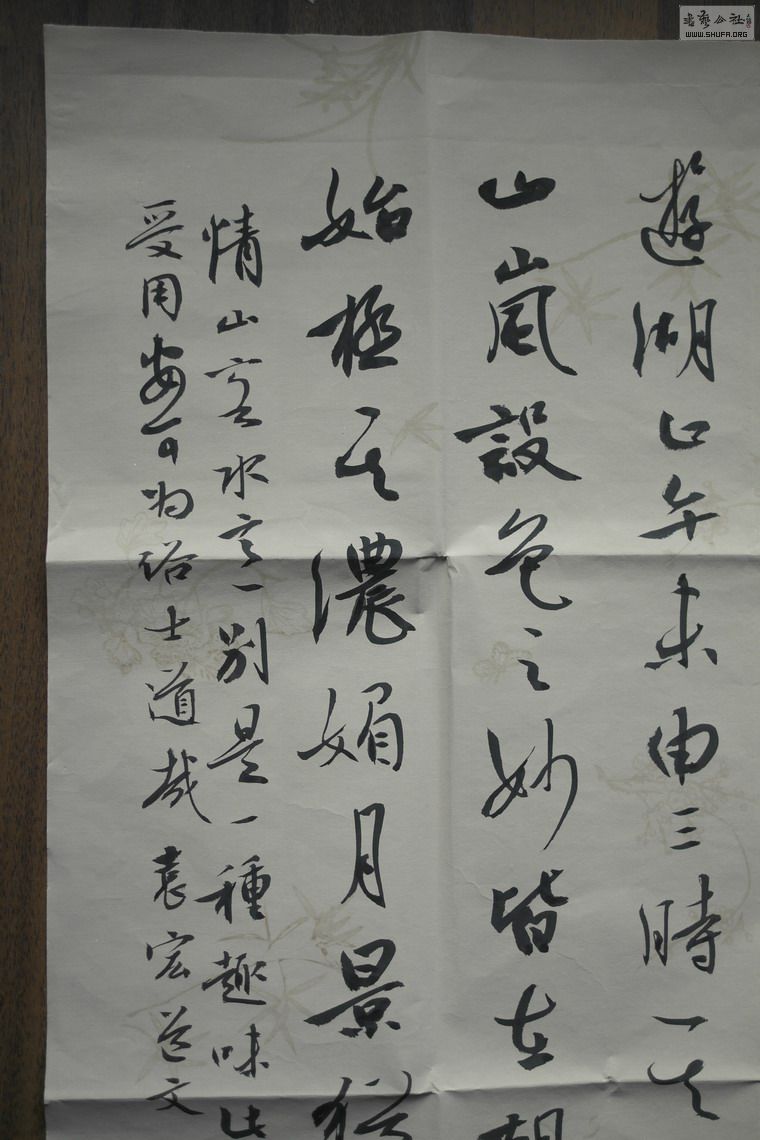 遊湖止午未申三時其
山嵐設色之妙皆在朝
始極其濃媚月景
情山容水意別是一種趣味此
受用安可為俗士道哉 袁宏道文
書藝公社
WWW.SHUFA.ORG